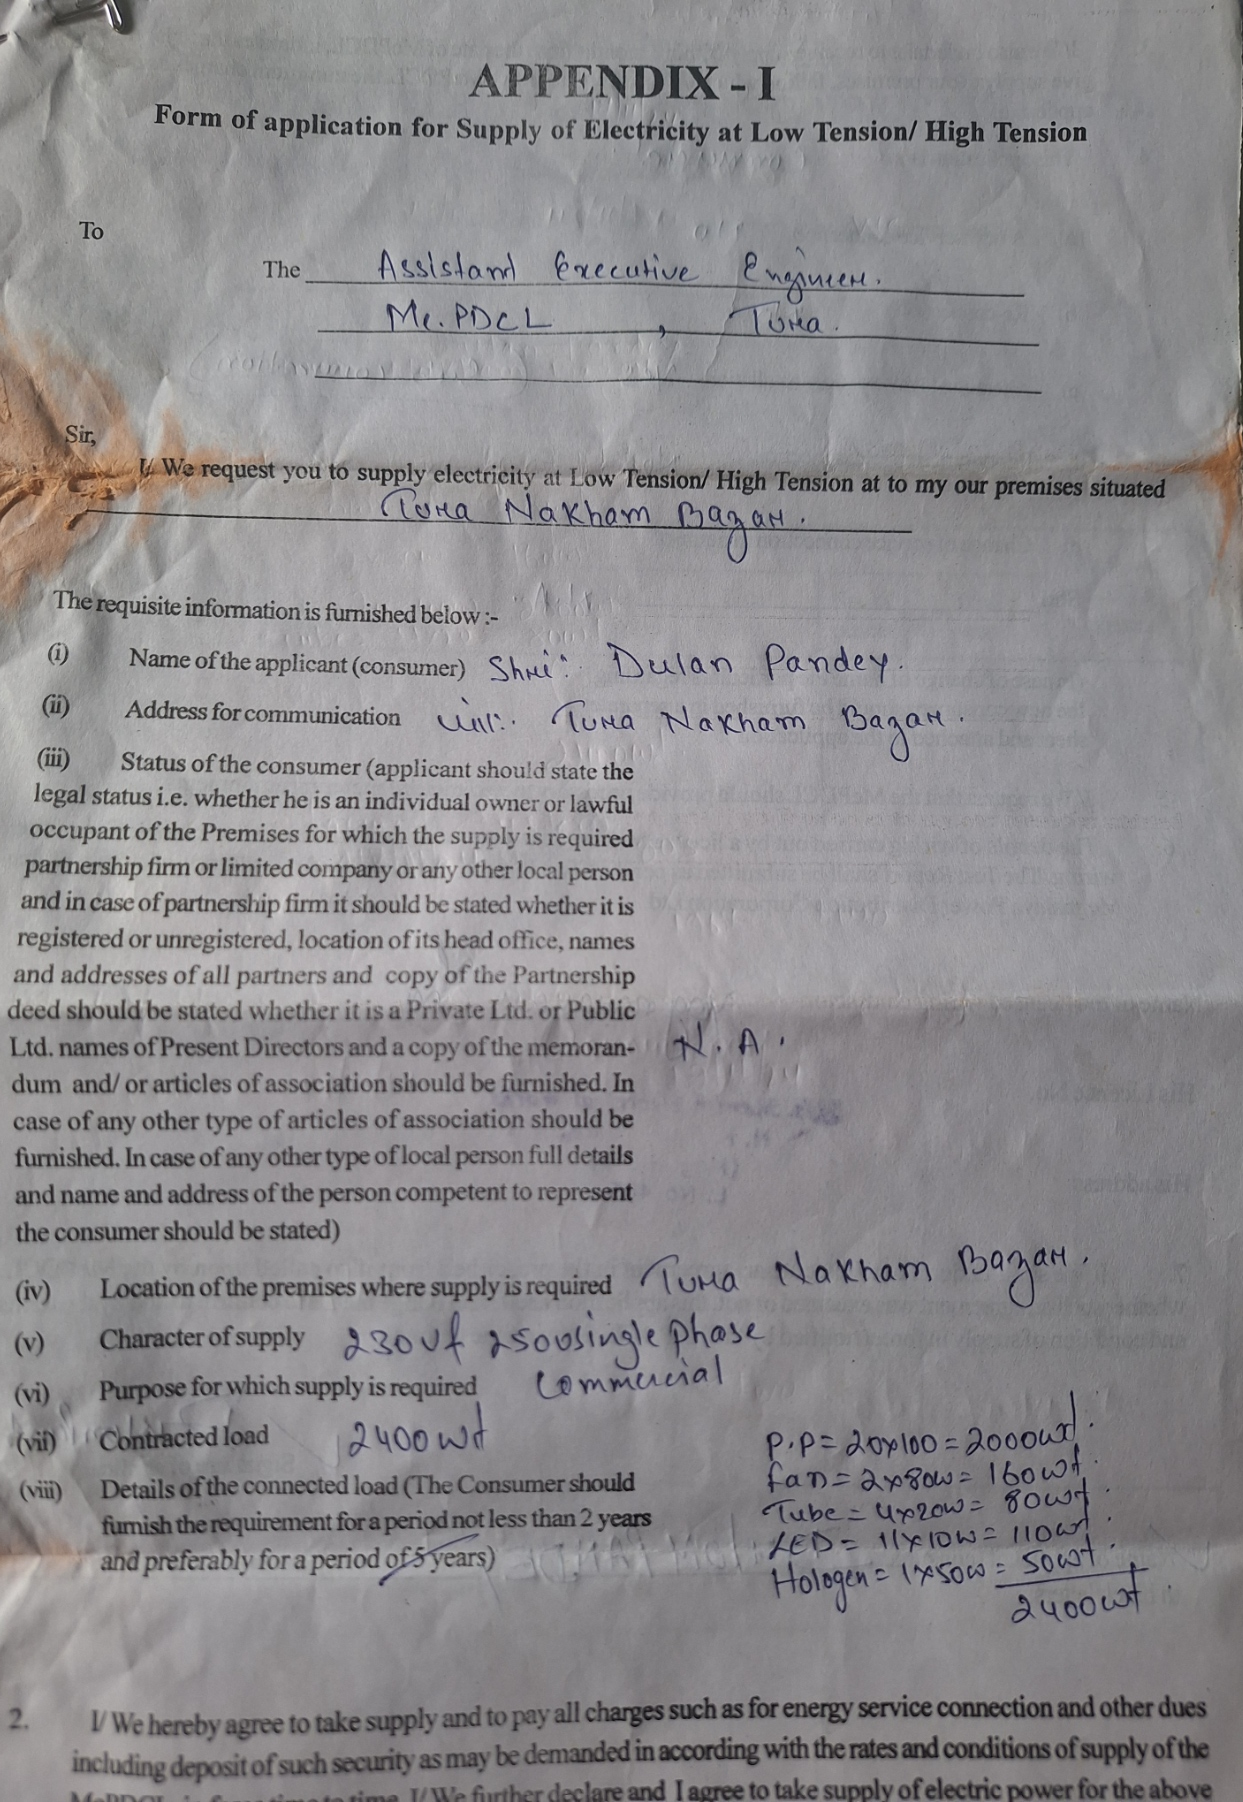 APPENDIX - I
Form of application for Supply of Electricity at Low Tension/ High Tension
To
The Assistant Executive Engineer.
Me. PDCL , Tura.
Sir,
I/ We request you to supply electricity at Low Tension/ High Tension at to my our premises situated
Tura Nakham Bazar.
The requisite information is furnished below :-
(i) Name of the applicant (consumer) Shri: Dulan Pandey.
(ii) Address for communication Vill:. Tura Nakham Bazar.
(iii) Status of the consumer (applicant should state the
legal status i.e. whether he is an individual owner or lawful
occupant of the Premises for which the supply is required
partnership firm or limited company or any other local person
and in case of partnership firm it should be stated whether it is
registered or unregistered, location of its head office, names
and addresses of all partners and copy of the Partnership
deed should be stated whether it is a Private Ltd. or Public
Ltd. names of Present Directors and a copy of the memoran- N. A.
dum and/ or articles of association should be furnished. In
case of any other type of articles of association should be
furnished. In case of any other type of local person full details
and name and address of the person competent to represent
the consumer should be stated)
(iv) Location of the premises where supply is required Tura Nakham Bazar.
(v) Character of supply 230Vt 250V single phase
(vi) Purpose for which supply is required Commercial
(vii) Contracted load 2400wt
P.P = 20x100 = 2000wt.
(viii) Details of the connected load (The Consumer should Fan = 2x80w = 160wt.
furnish the requirement for a period not less than 2 years Tube = 4x20w = 80wt.
and preferably for a period of 5 years) LED = 11x10w = 110wt.
Hologen = 1x50w = 50wt.
2400wt.
2. I/ We hereby agree to take supply and to pay all charges such as for energy service connection and other dues
including deposit of such security as may be demanded in according with the rates and conditions of supply of the
MePDCL time to time. I/ We further declare and I agree to take supply of electric power for the above